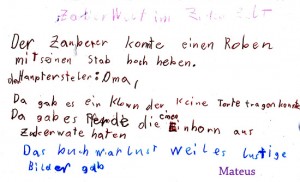 Zauberwelt im Zauberzelt
Der Zauberer konte einen Raben
mit seinen Stab hoch heben.
Hauptersteler: Oma,
Da gab es ein Klown der keine Torte tragen konte
Da gab es Pferde die einen Einhorn aus
Zuckerwate haten
Das buch war lust weil es lustige
Bilder gab
Mateus